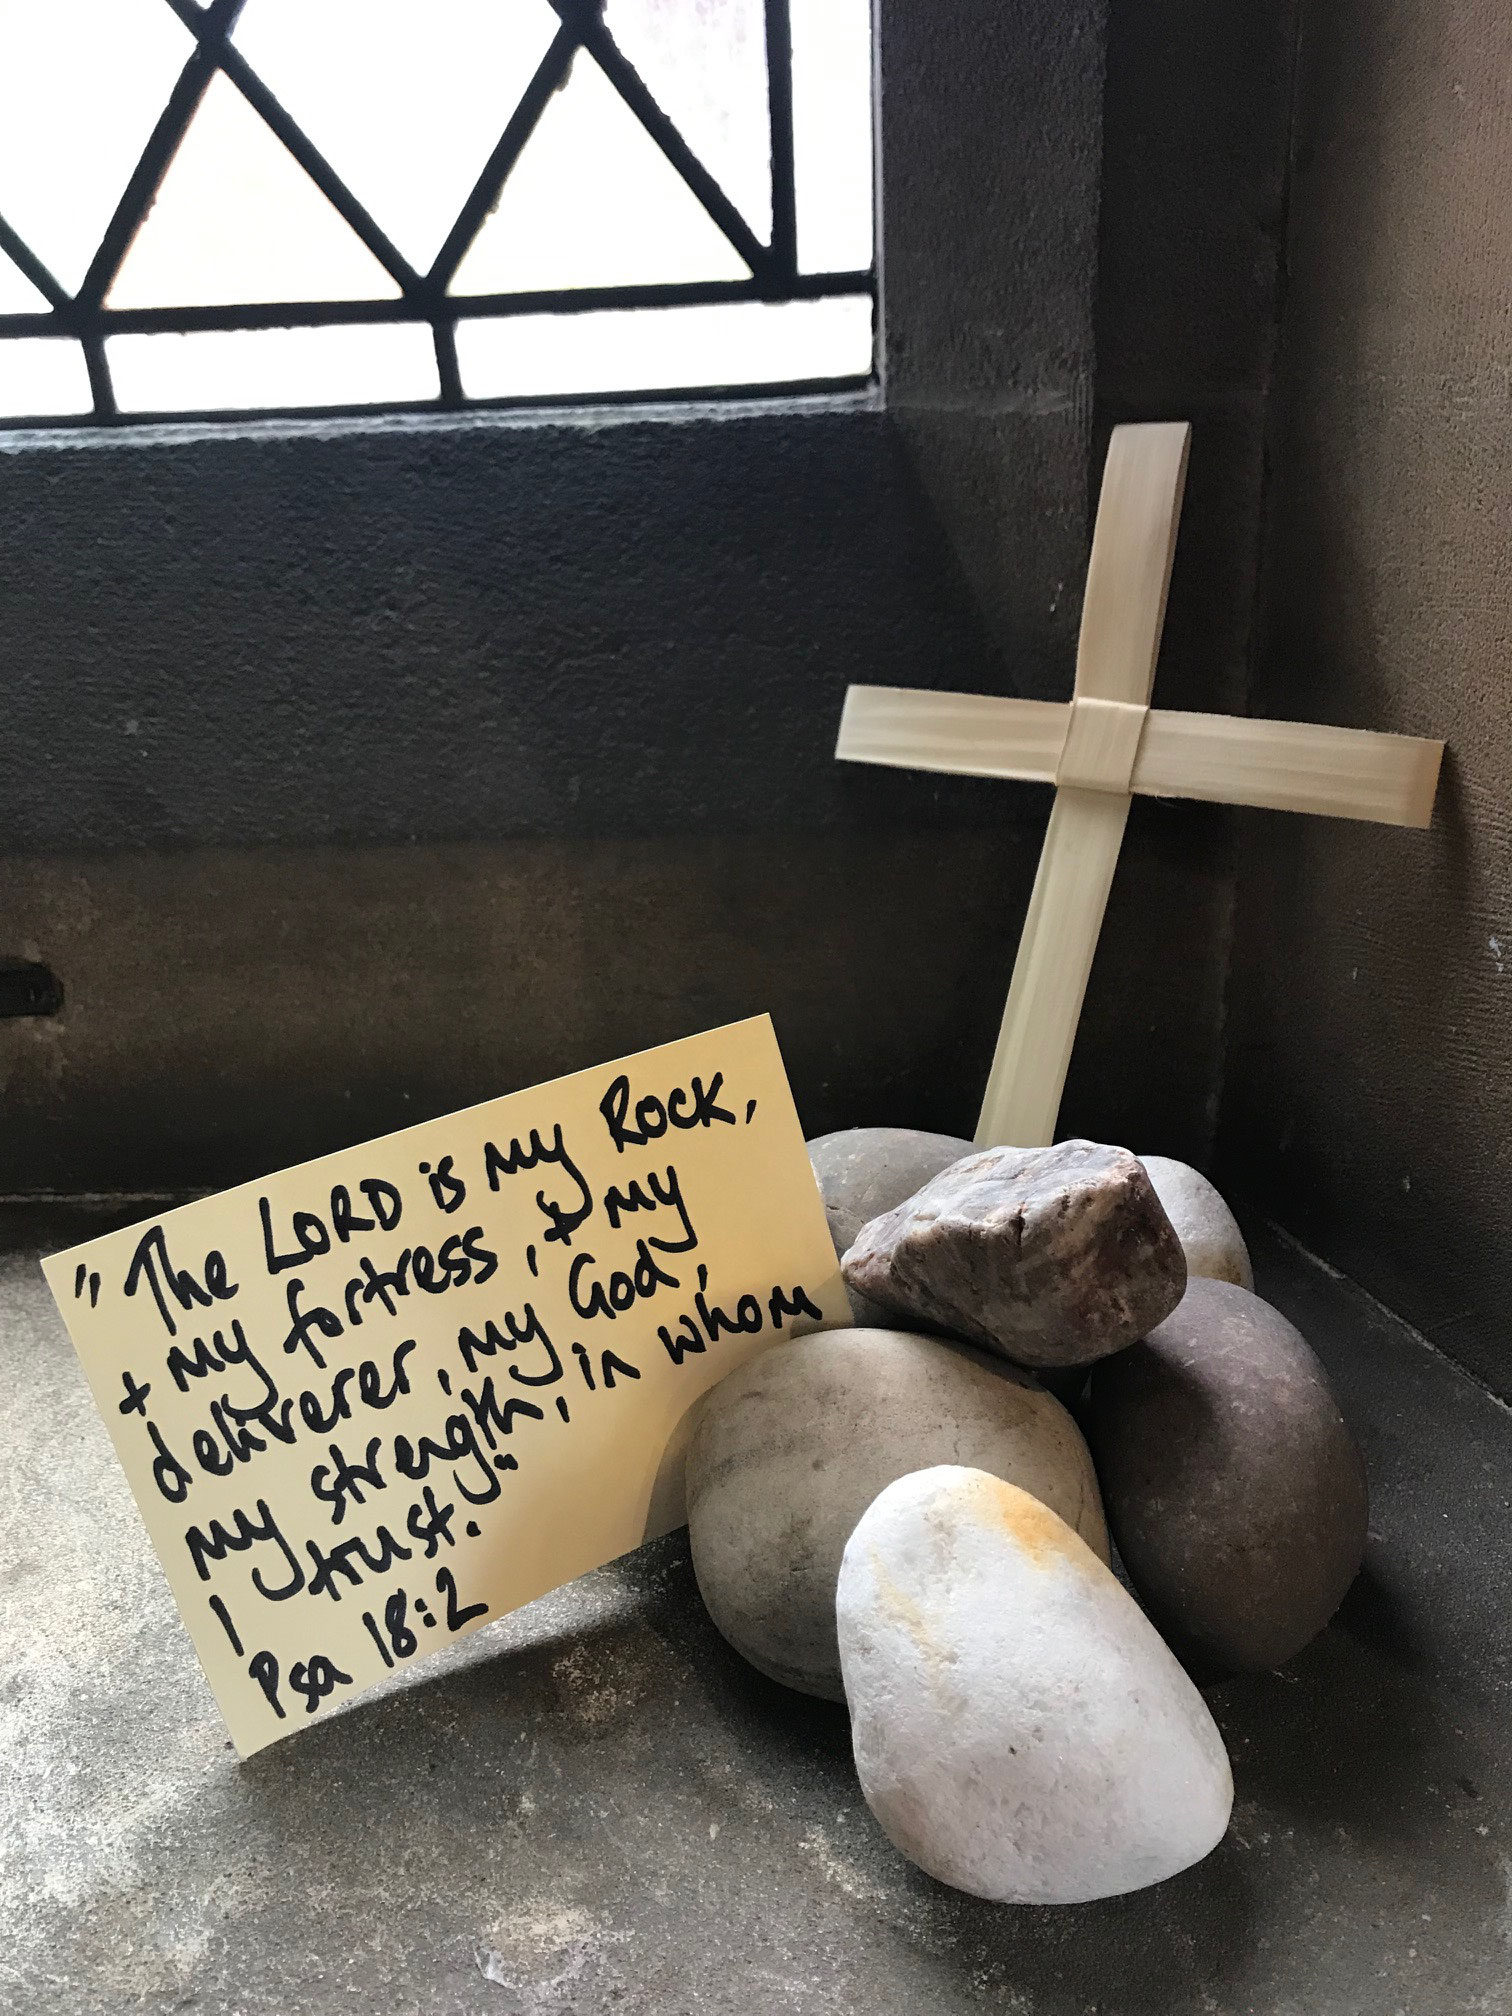 "The LORD is my Rock,
+ my fortress, & my
deliverer, my God,
my strength, in whom
I trust."
Psa 18:2